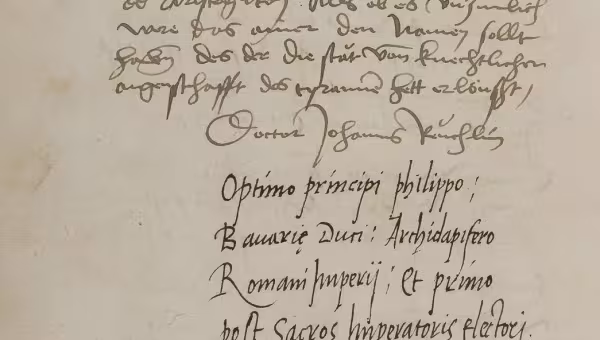 ware das ainer den Namen sollt
haben des der die stat von knechtlichen
aigenschafft des tyrannē hett erlöusst,
Doctor Johannes Reuchlin
Optimo principi philippo;
Bauarię Duci: Archidapifero
Romani Imperij; Et primo
post Sacros Imperatoris electori.